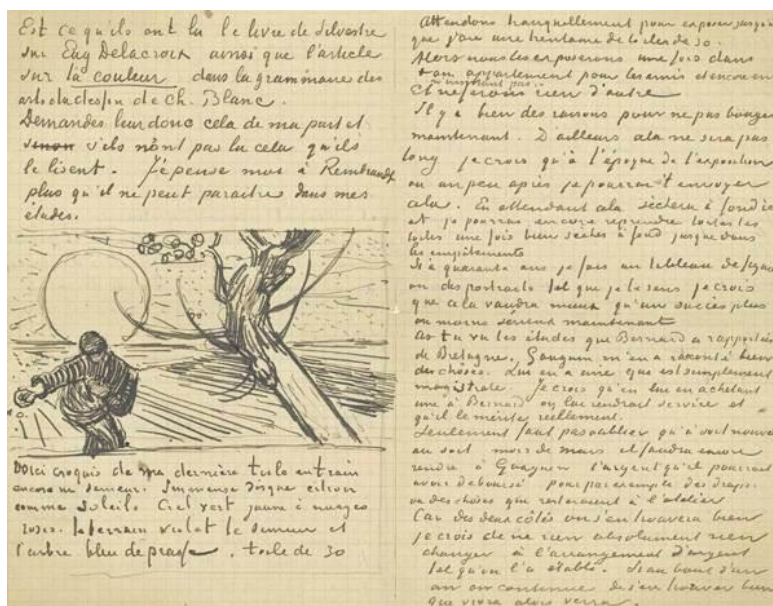 Est ce qu'ils ont lu le livre de Silvestre
sur Eug Delacroix ainsi que l'article
sur la couleur dans la grammaire des
arts du dessin de Ch. Blanc.
Demandes leur donc cela de ma part et
sinon s'ils n'ont pas lu cela qu'ils
le lisent. Je pense moi à Rembrandt
plus qu'il ne peut paraitre dans mes
études.
Voici croquis de ma dernière toile en train
encore un semeur. Immense disque citron
comme soleil. Ciel vert jaune à nuages
roses. le terrain violet le semeur et
l'arbre bleu de prusse. toile de 30
Attendons tranquillement pour exposer jusqu'à
que j'aie une trentaine de toiles de 30.
Alors nous les exposerons une fois dans
ton appartement pour les amis et encore en
et ne ferons rien d'autre
Il y a bien des raisons pour ne pas bouger
maintenant. D'ailleurs cela ne sera pas
long je crois qu'à l'époque de l'exposition
ou un peu après je pourrai t'envoyer
cela. En attendant cela sèchera à fond ici
et je pourrai encore reprendre toutes les
toiles une fois bien sèches à fond jusque dans
les empâtements
Si à quarante ans je fais un tableau de figures
ou des portraits tel que je le sens je crois
que cela vaudra mieux qu'un succès plus
ou moins sérieux maintenant
As tu vu les études que Bernard a rapportées
de Bretagne. Gauguin m'en a raconté bien
des choses. Lui en a une que est simplement
magistrale. Je crois qu'en lui en achetant
une à Bernard on lui rendrait service et
qu'il le mérite réellement.
Seulement faut pas oublier qu'à soit nouvel
an soit mois de mars il faudra encore
rendre à Gauguin l'argent qu'il pourrait
avoir deboursé pour par exemple des draps
ou des choses que resteraient à l'atelier
Car des deux côtés on s'en trouvera bien
je crois de ne rien absolument rien
changer à l'arrangement d'argent
tel qu'on l'a établi. Si au bout d'un
an on continue de s'en trouver bien
que vivra alors verra.